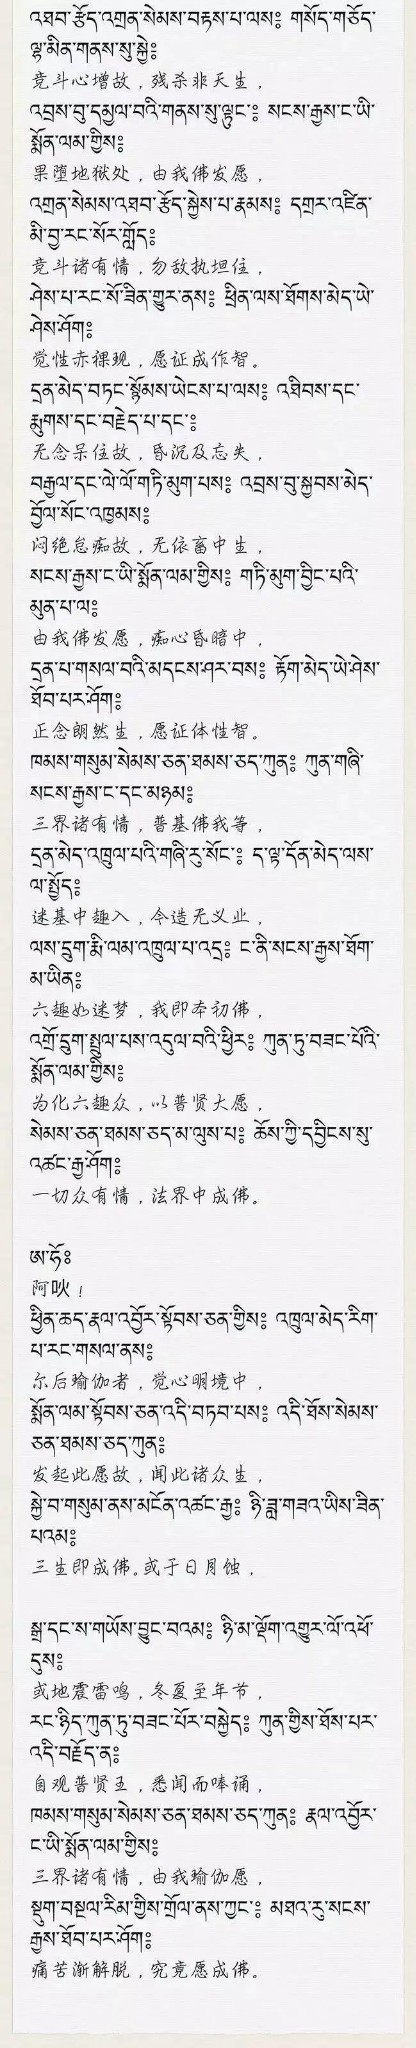 འཐབ་རྩོད་འགྲན་སེམས་བརྟས་པ་ལས༔ གསོད་གཅོད་
ལྷ་མིན་གནས་སུ་སྐྱེ༔
竞斗心增故，残杀非天生，
འབྲས་བུ་དམྱལ་བའི་གནས་སུ་ལྟུང་༔ སངས་རྒྱས་ང་ཡི་
སྨོན་ལམ་གྱིས༔
果堕地狱处，由我佛发愿，
འགྲན་སེམས་འཐབ་རྩོད་སྐྱེས་པ་རྣམས༔ དགྲར་འཛིན་
མི་བྱ་རང་སོར་གློད༔
竞斗诸有情，勿敌执坦住，
ཤེས་པ་རང་སོ་ཟིན་གྱུར་ནས༔ ཕྲིན་ལས་ཐོགས་མེད་ཡེ་
ཤེས་ཤོག༔
觉性赤裸现，愿证成作智。
དྲན་མེད་བཏང་སྙོམས་ཡེངས་པ་ལས༔ འཐིབས་དང་
རྨུགས་དང་བརྗེད་པ་དང་༔
无念呆住故，昏沉及忘失，
བརྒྱལ་དང་ལེ་ལོ་གཏི་མུག་པས༔ འབྲས་བུ་སྐྱབས་མེད་
བྱོལ་སོང་འཁྱམས༔
闷绝怠痴故，无依畜中生，
སངས་རྒྱས་ང་ཡི་སྨོན་ལམ་གྱིས༔ གཏི་མུག་བྱིང་པའི་
མུན་པ་ལ༔
由我佛发愿，痴心昏暗中，
དྲན་པ་གསལ་བའི་མདངས་ཤར་བས༔ རྟོག་མེད་ཡེ་ཤེས་
ཐོབ་པར་ཤོག༔
正念朗然生，愿证体性智。
ཁམས་གསུམ་སེམས་ཅན་ཐམས་ཅད་ཀུན༔ ཀུན་གཞི་
སངས་རྒྱས་ང་དང་མཉམ༔
三界诸有情，普基佛我等，
དྲན་མེད་འཁྲུལ་པའི་གཞི་རུ་སོང་༔ ད་ལྟ་དོན་མེད་ལས་
ལ་སྤྱོད༔
迷基中趣入，今造无义业，
ལས་དྲུག་རྨི་ལམ་འཁྲུལ་པ་འདྲ༔ ང་ནི་སངས་རྒྱས་ཐོག་
མ་ཡིན༔
六趣如迷梦，我即本初佛，
འགྲོ་དྲུག་སྤྲུལ་པས་འདུལ་བའི་ཕྱིར༔ ཀུན་ཏུ་བཟང་པོའི་
སྨོན་ལམ་གྱིས༔
为化六趣众，以普贤大愿，
སེམས་ཅན་ཐམས་ཅད་མ་ལུས་པ༔ ཆོས་ཀྱི་དབྱིངས་སུ་
འཚང་རྒྱ་ཤོག༔
一切众有情，法界中成佛。
ཨ་ཧོ༔
阿吙！
ཕྱིན་ཆད་རྣལ་འབྱོར་སྟོབས་ཅན་གྱིས༔ འཁྲུལ་མེད་རིག་
པ་རང་གསལ་ནས༔
尔后瑜伽者，觉心明境中，
སྨོན་ལམ་སྟོབས་ཅན་འདི་བཏབ་པས༔ འདི་ཐོས་སེམས་
ཅན་ཐམས་ཅད་ཀུན༔
发起此愿故，闻此诸众生，
སྐྱེ་བ་གསུམ་ནས་མངོན་འཚང་རྒྱ༔ ཉི་ཟླ་གཟའ་ཡིས་ཟིན་
པའམ༔
三生即成佛。或于日月蚀，
སྒྲ་དང་ས་གཡོས་བྱུང་བའམ༔ ཉི་མ་ལྡོག་འགྱུར་ལོ་འཕོ་
དུས༔
或地震雷鸣，冬夏至年节，
རང་ཉིད་ཀུན་ཏུ་བཟང་པོར་བསྐྱེད༔ ཀུན་གྱིས་ཐོས་པར་
འདི་བརྗོད་ན༔
自观普贤王，悉闻而唪诵，
ཁམས་གསུམ་སེམས་ཅན་ཐམས་ཅད་ཀུན༔ རྣལ་འབྱོར་
ང་ཡི་སྨོན་ལམ་གྱིས༔
三界诸有情，由我瑜伽愿，
སྡུག་བསྔལ་རིམ་གྱིས་གྲོལ་ནས་ཀྱང་༔ མཐའ་རུ་སངས་
རྒྱས་ཐོབ་པར་ཤོག༔
痛苦渐解脱，究竟愿成佛。